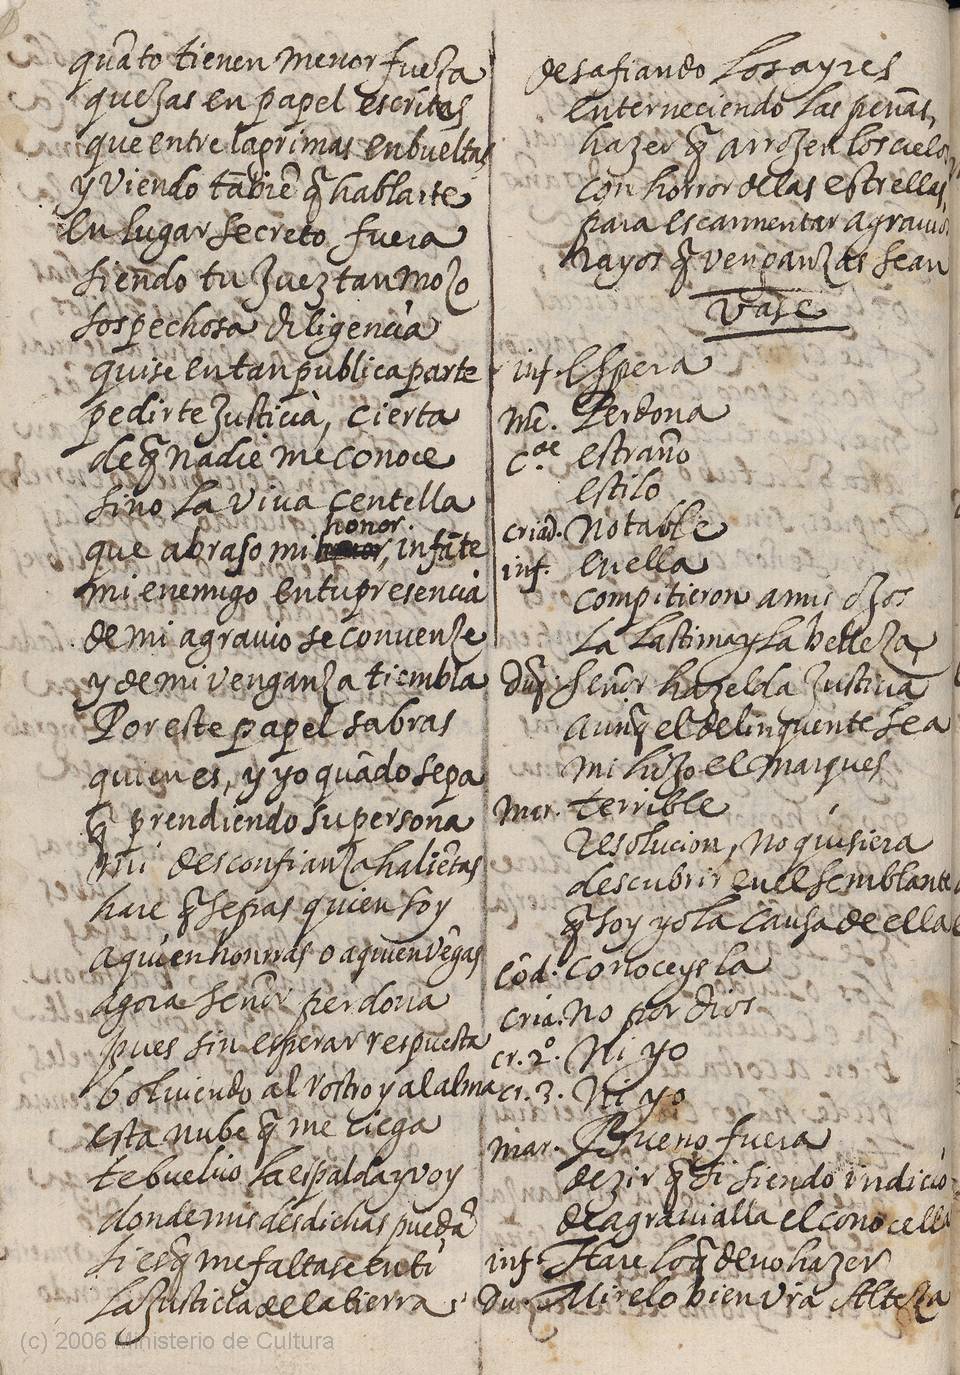 quãto tienen menor fuerza
quezas en papel escritas
que entre lagrimas enbueltas
y viendo tãbiẽ q̃ hablarte
en lugar secreto fuera
siendo tu Juez tan mozo
sospechosa diligencia
quise en tan publica parte
pedirte Justicia, cierta
de q̃ nadie me conoce
sino la viva centella
honor.
que abraso mi, infãte
mi enemigo en tu presencia
de mi agravio se convenze
y de mi venganza tiembla
Por este papel sabras
quien es, y yo quãdo sepa
q̃ prendiendo su persona
mi desconfianza haliẽtas
hare q̃ sepas quien soy
a quien honrras o a quien vẽgas
agora señor perdona
pues sin esperar respuesta
bolviendo al rostro y al alma
esta nube q̃ me ciega
te buelvo la espalda y voy
donde mis desdichas puedã
si es q̃ me faltase en ti
la Justicia de la tierra
desafiando los ayres
enterneciendo las peñas,
hazer q̃ arrozen los cielos
con horror de las estrellas,
para escarmentar agravios
Rayos q̃ venganzas sean
vase
inf. Espera
Mr. Perdona
estraño
estilo
criad. Notable
inf. en ella
compitieron a mis ojos
la lastima y la belleza,
Duq̃. señor hazelda Justicia
aunq̃ el delinquente sea
mi hijo el Marques
Mar. terrible
resolucion, no quisiera
descubrir en el semblante
q̃ soy yo la causa de ella
Cõd. conoceys la
cria. No por dios
cr. 2º. Ni yo
cr. 3. Ni yo
mar. Bueno fuera
dezir q̃ si siendo indicio
de agravialla el conocella
inf. Hare lo q̃ devo hazer
Du. Mirelo bien vrã Alteza